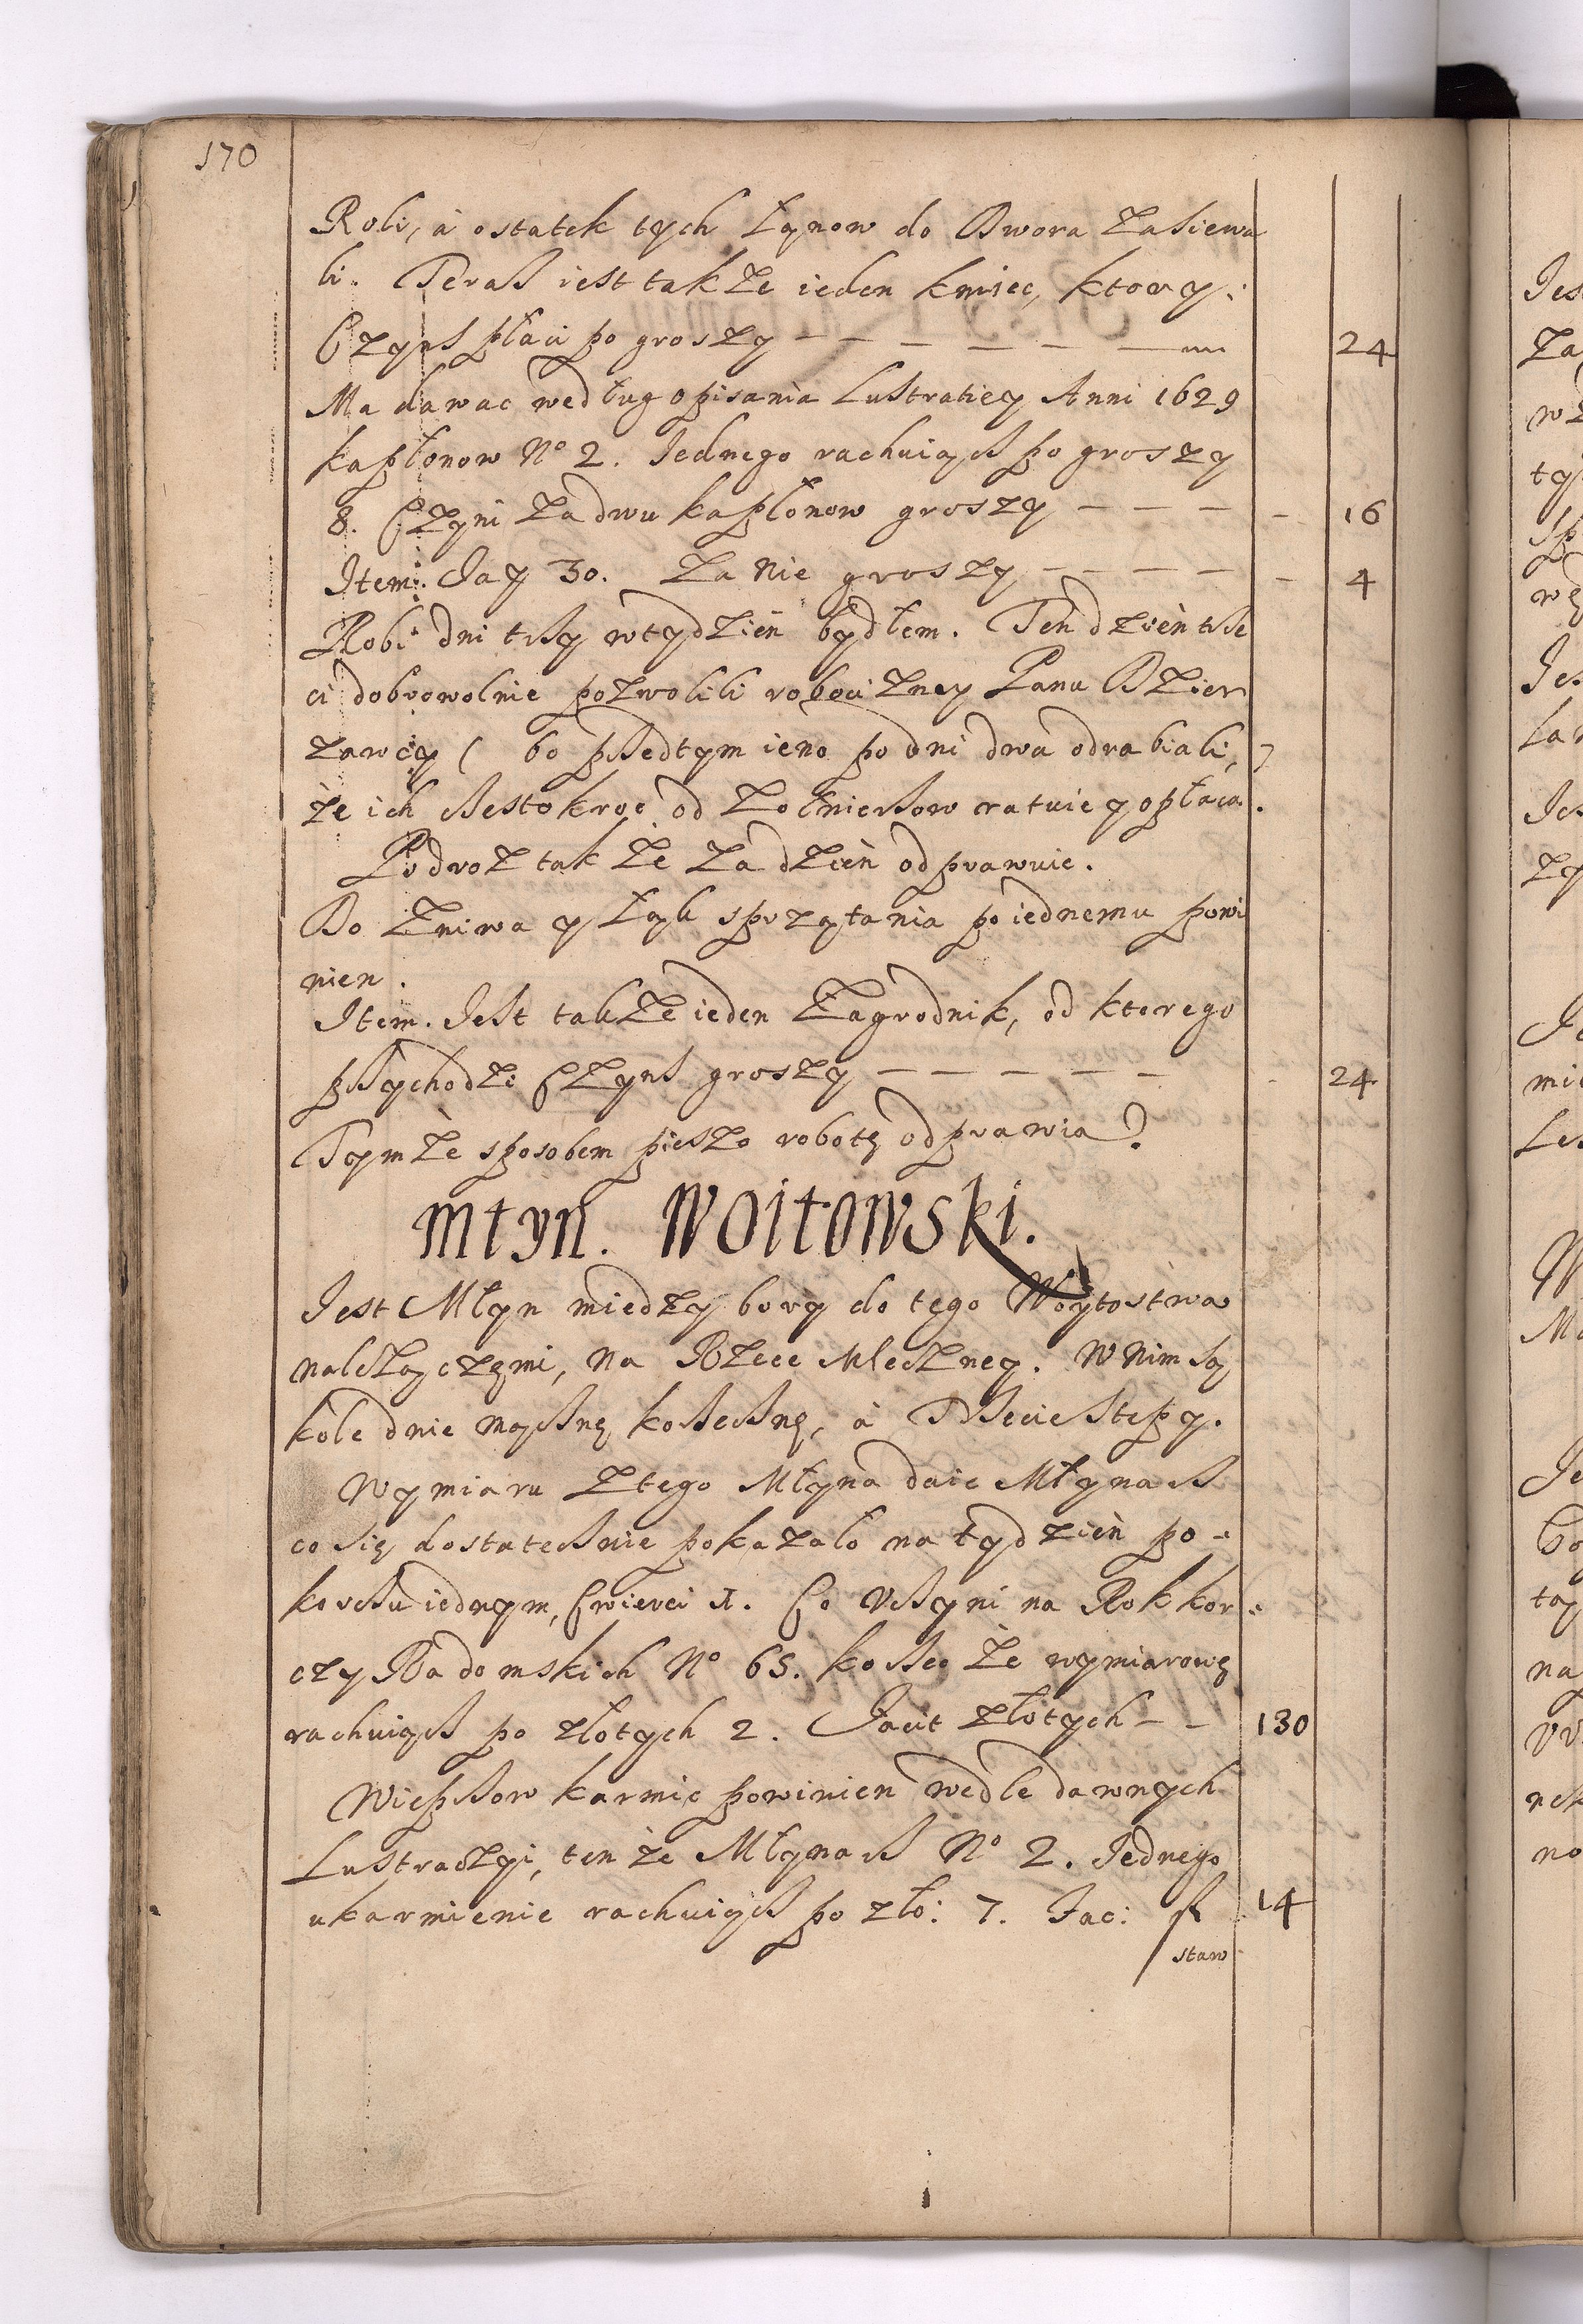 170
Roli, à ostatek tych Łąnow do Dwora zasiewa
li. Teraß iest także ieden kmieć, ktory:
Czynß płaci po groszy — — — — — — 24
Ma dawać według opisania Lustratiey Anni 1629
kapłonow No 2. Jednego rachuiąß po groszy
8. Czyni za dwu kapłonow groszy — — — — 16
Item. Jay 30. za nie groszy — — — — 4
Robi dni trży w tydzień bydłem. Ten dzień trże
ci dobrowolnie pozwolili robocizney Panu Dzier
zawcy ( bo przedtym ieno po dni dwa odrabiali, )
że ich cżestokroć od żołnierżow ratuie y opłaca.
Podroż także za dzień odprawuie.
Do żniwa y Łąk sprzątania po iednemu powi
nien.
Item. Jest także ieden Zagrodnik, od ktorego
przychodzi Czynß groszy — — — — — 24
Tymże sposobem pieszo robotę odprawia.
Młyn. Woitowski.
Jest Młyn miedzy bory do tego Woytostwa
należączęmi, na Rzece Mleczney. W nim są
kole dnie mącżnę korżecżnę, à Trżecie Stępy.
Wymiaru z tego Młyna daie Młynarż
co się dostatecżnie pokazało na tydzień po-
korcżu iednym, Cwierci 1. Co vcżyni na Rok kor=
czy Radomskich No 65. korżec że wymiarowę
rachuiąc po złotych 2. Facit złotych — — 130
Wieprżow karmić powinien wedle dawnych
Lustraczyi, tenże Młynarż No 2. Jednego
ukarmienie rachuiąc po zło: 7. Fac: fl 14
staw